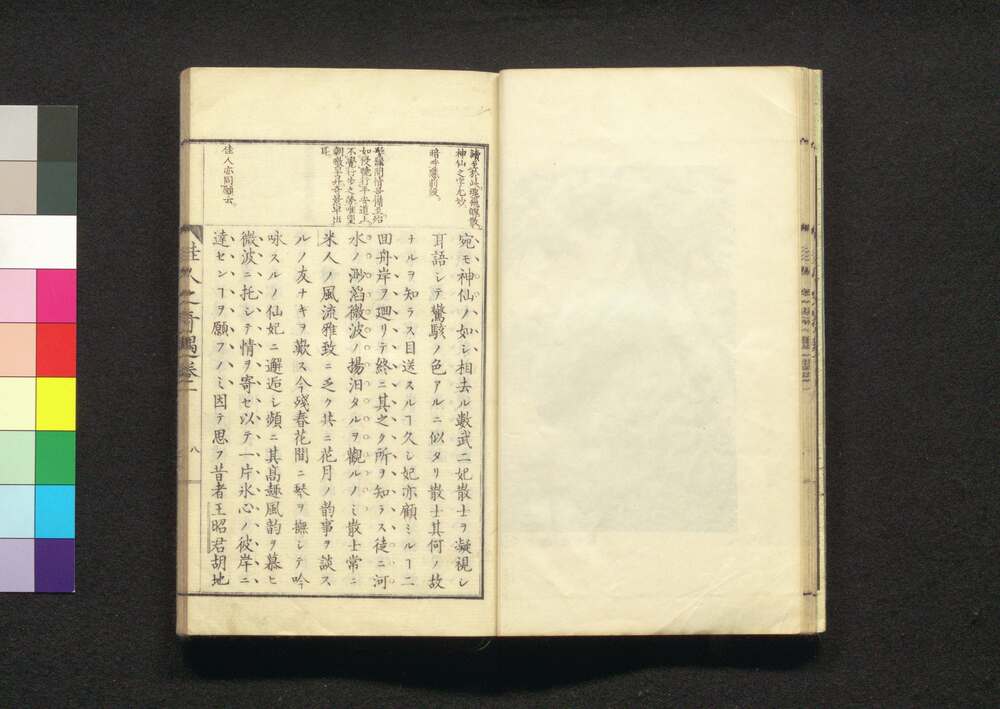 宛モ神仙ノ如シ相去ル數武二妃散士ヲ凝視シ
耳語シテ驚駭ノ色アルニ似タリ散士其何ノ故
ナルヲ知ラス目送スルヿ久シ妃亦顧ミルヿ二
回舟岸ヲ廻リテ終ニ其之ク所ヲ知ラス徒ニ河
水ノ渺滔微波ノ揚汨タルヲ觀ルノミ散士常ニ
米人ノ風流雅致ニ乏ク共ニ花月ノ韵事ヲ談ス
ルノ友ナキヲ歎ス今殘春花間ニ琴ヲ撫シテ吟
咏スルノ仙妃ニ邂逅シ頻ニ其高趣風韵ヲ慕ヒ
微波ニ托シテ情ヲ寄セ以テ一片氷心ノ彼岸ニ
達センヿヲ願フノミ因テ思フ昔者王昭君胡地
神仙之字尤妙
暗ニ應前段。
不覺行歩之勞唯望
耳
佳人亦同願云。
佳人之奇遇 卷二
八